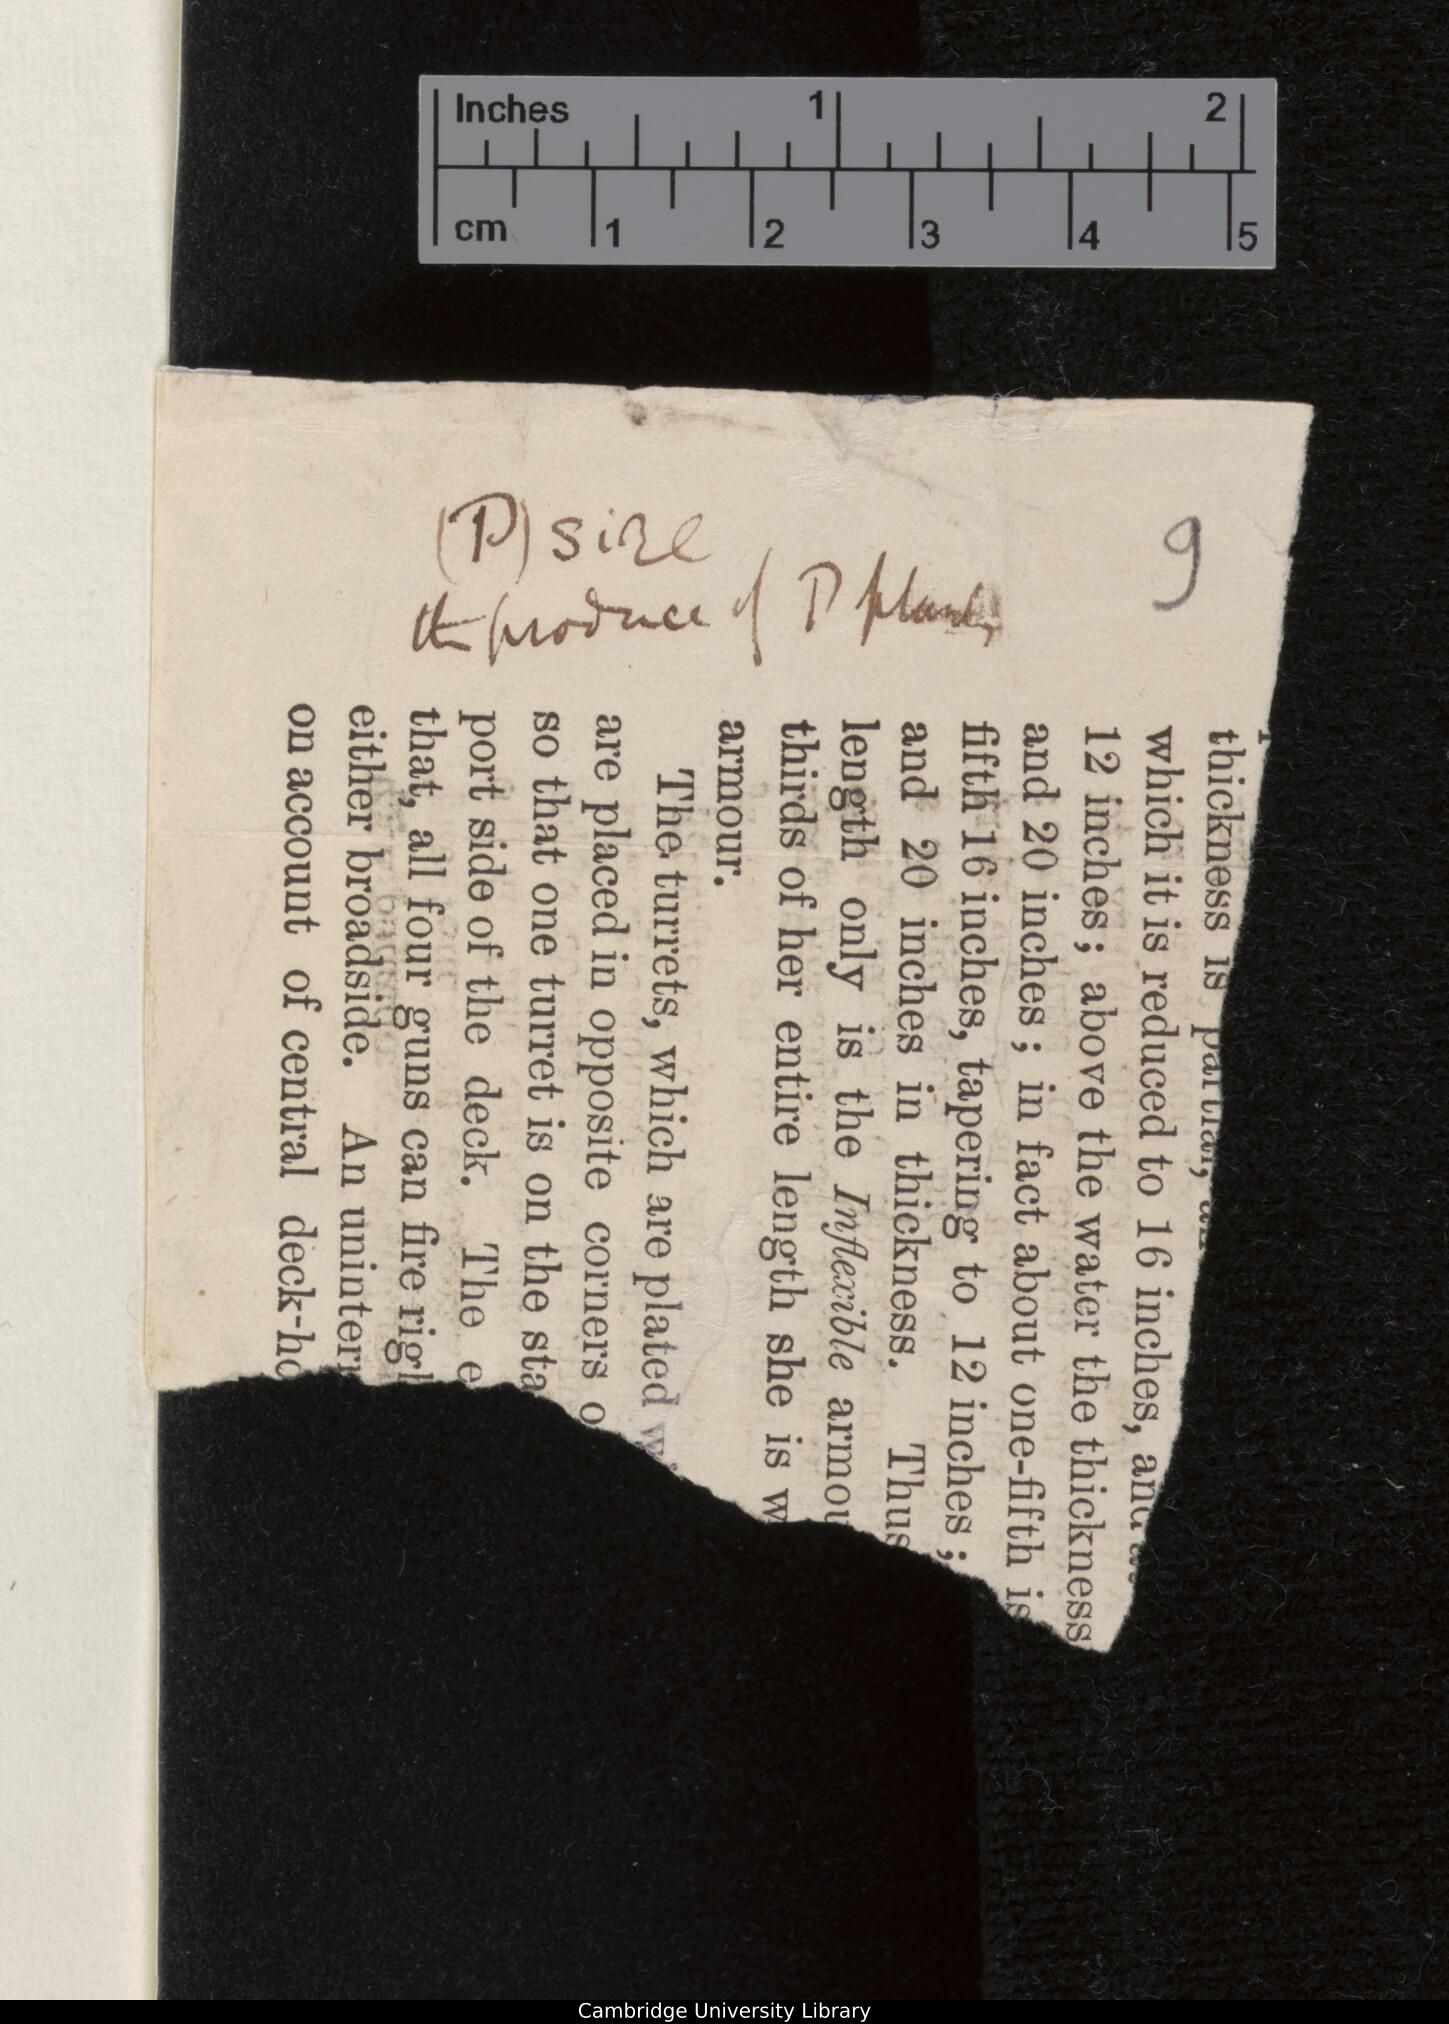 Inches 1 2
cm 1 2 3 4 5
9
(P) size
the produce of P plants
thickness is partial,
which it is reduced to 16 inches, and
12 inches; above the water the thickness
and 20 inches; in fact about one-fifth is
fifth 16 inches, tapering to 12 inches;
and 20 inches in thickness. Thus
length only is the Inflexible armou
thirds of her entire length she is w
armour.
The turrets, which are plated wi
are placed in opposite corners o
so that one turret is on the sta
port side of the deck. The e
that, all four guns can fire righ
either broadside. An uninterr
on account of central deck-ho
Cambridge University Library